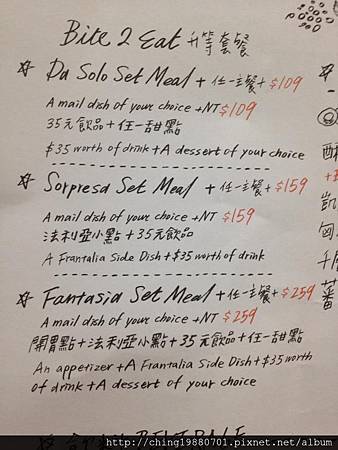 Bite 2 Eat 升等套餐
☆ Da Solo Set Meal + 任一主餐 + $109
A mail dish of your choice + NT $109
35元飲品 + 任一甜點
$35 worth of drink + A dessert of your choice
☆ Sorpresa Set Meal + 任一主餐 + $159
A mail dish of your choice + NT $159
法利亞小點 + 35元飲品
A Frantalia Side Dish + $35 worth of drink
☆ Fantasia Set Meal + 任一主餐 + $259
A mail dish of your choice + NT $259
開胃點 + 法利亞小點 + 35元飲品 + 任一甜點
An appetizer + A Frantalia Side Dish + $35 worth
of drink + A dessert of your choice
凱
千
蕃
http://ching19880701.pixnet.net/album